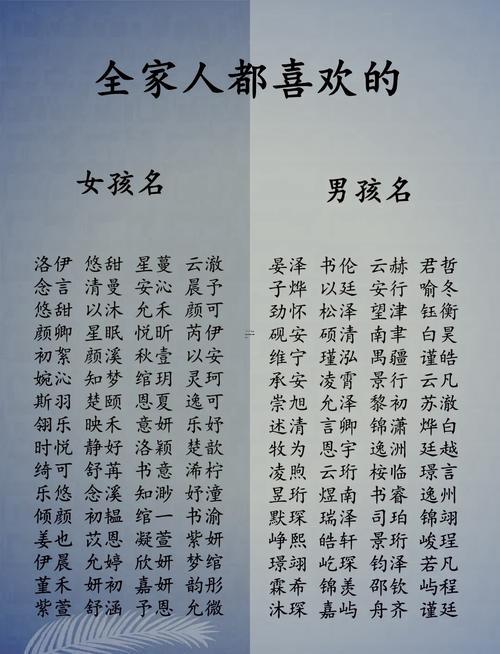 全家人都喜欢的
女孩名
洛伊 悠甜 星蔓 云澈
念言 清曼 安沁 晨予
悠甜 以沐 允禾 颜可
颜卿 星眠 悦昕 芮伊
初絮 颜溪 秋壹 以安
婉沁 知梦 绾玥 灵珂
斯羽 楚颐 恩夏 逸可
翎乐 映禾 意妍 乐妤
时悦 静好 洛颖 楚歆
绮可 舒苒 书意 浠柠
乐悠 念溪 知渺 妤潼
倾颜 初韫 绾一 书渝
姜也 苡恩 凝萱 紫妍
伊晨 允婷 欣妍 梦绾
董禾 妍初 嘉妍 韵彤
紫萱 舒涵 予恩 允微
男孩名
晏泽 书伦 云赫 君哲
子烨 以廷 安行 喻冬
劲怀 松泽 望津 钰衡
砚安 硕清 南聿 白昊
维宁 瑾泓 禺疆 谨皓
承安 凌霄 景行 云凡
崇旭 允泽 黎初 苏澈
述清 言卿 锦潇 烨白
牧为 恩宇 逸洲 廷越
凌煦 云珩 桉临 璟言
昱珩 煜南 书睿 逸州
默琛 瑞泽 司珀 锦翊
峥熙 皓轩 景珩 峻珵
璟翊 屹琛 钧泽 若凡
霖希 锦羡 邵钦 屿程
沐琛 嘉屿 舟齐 谨廷